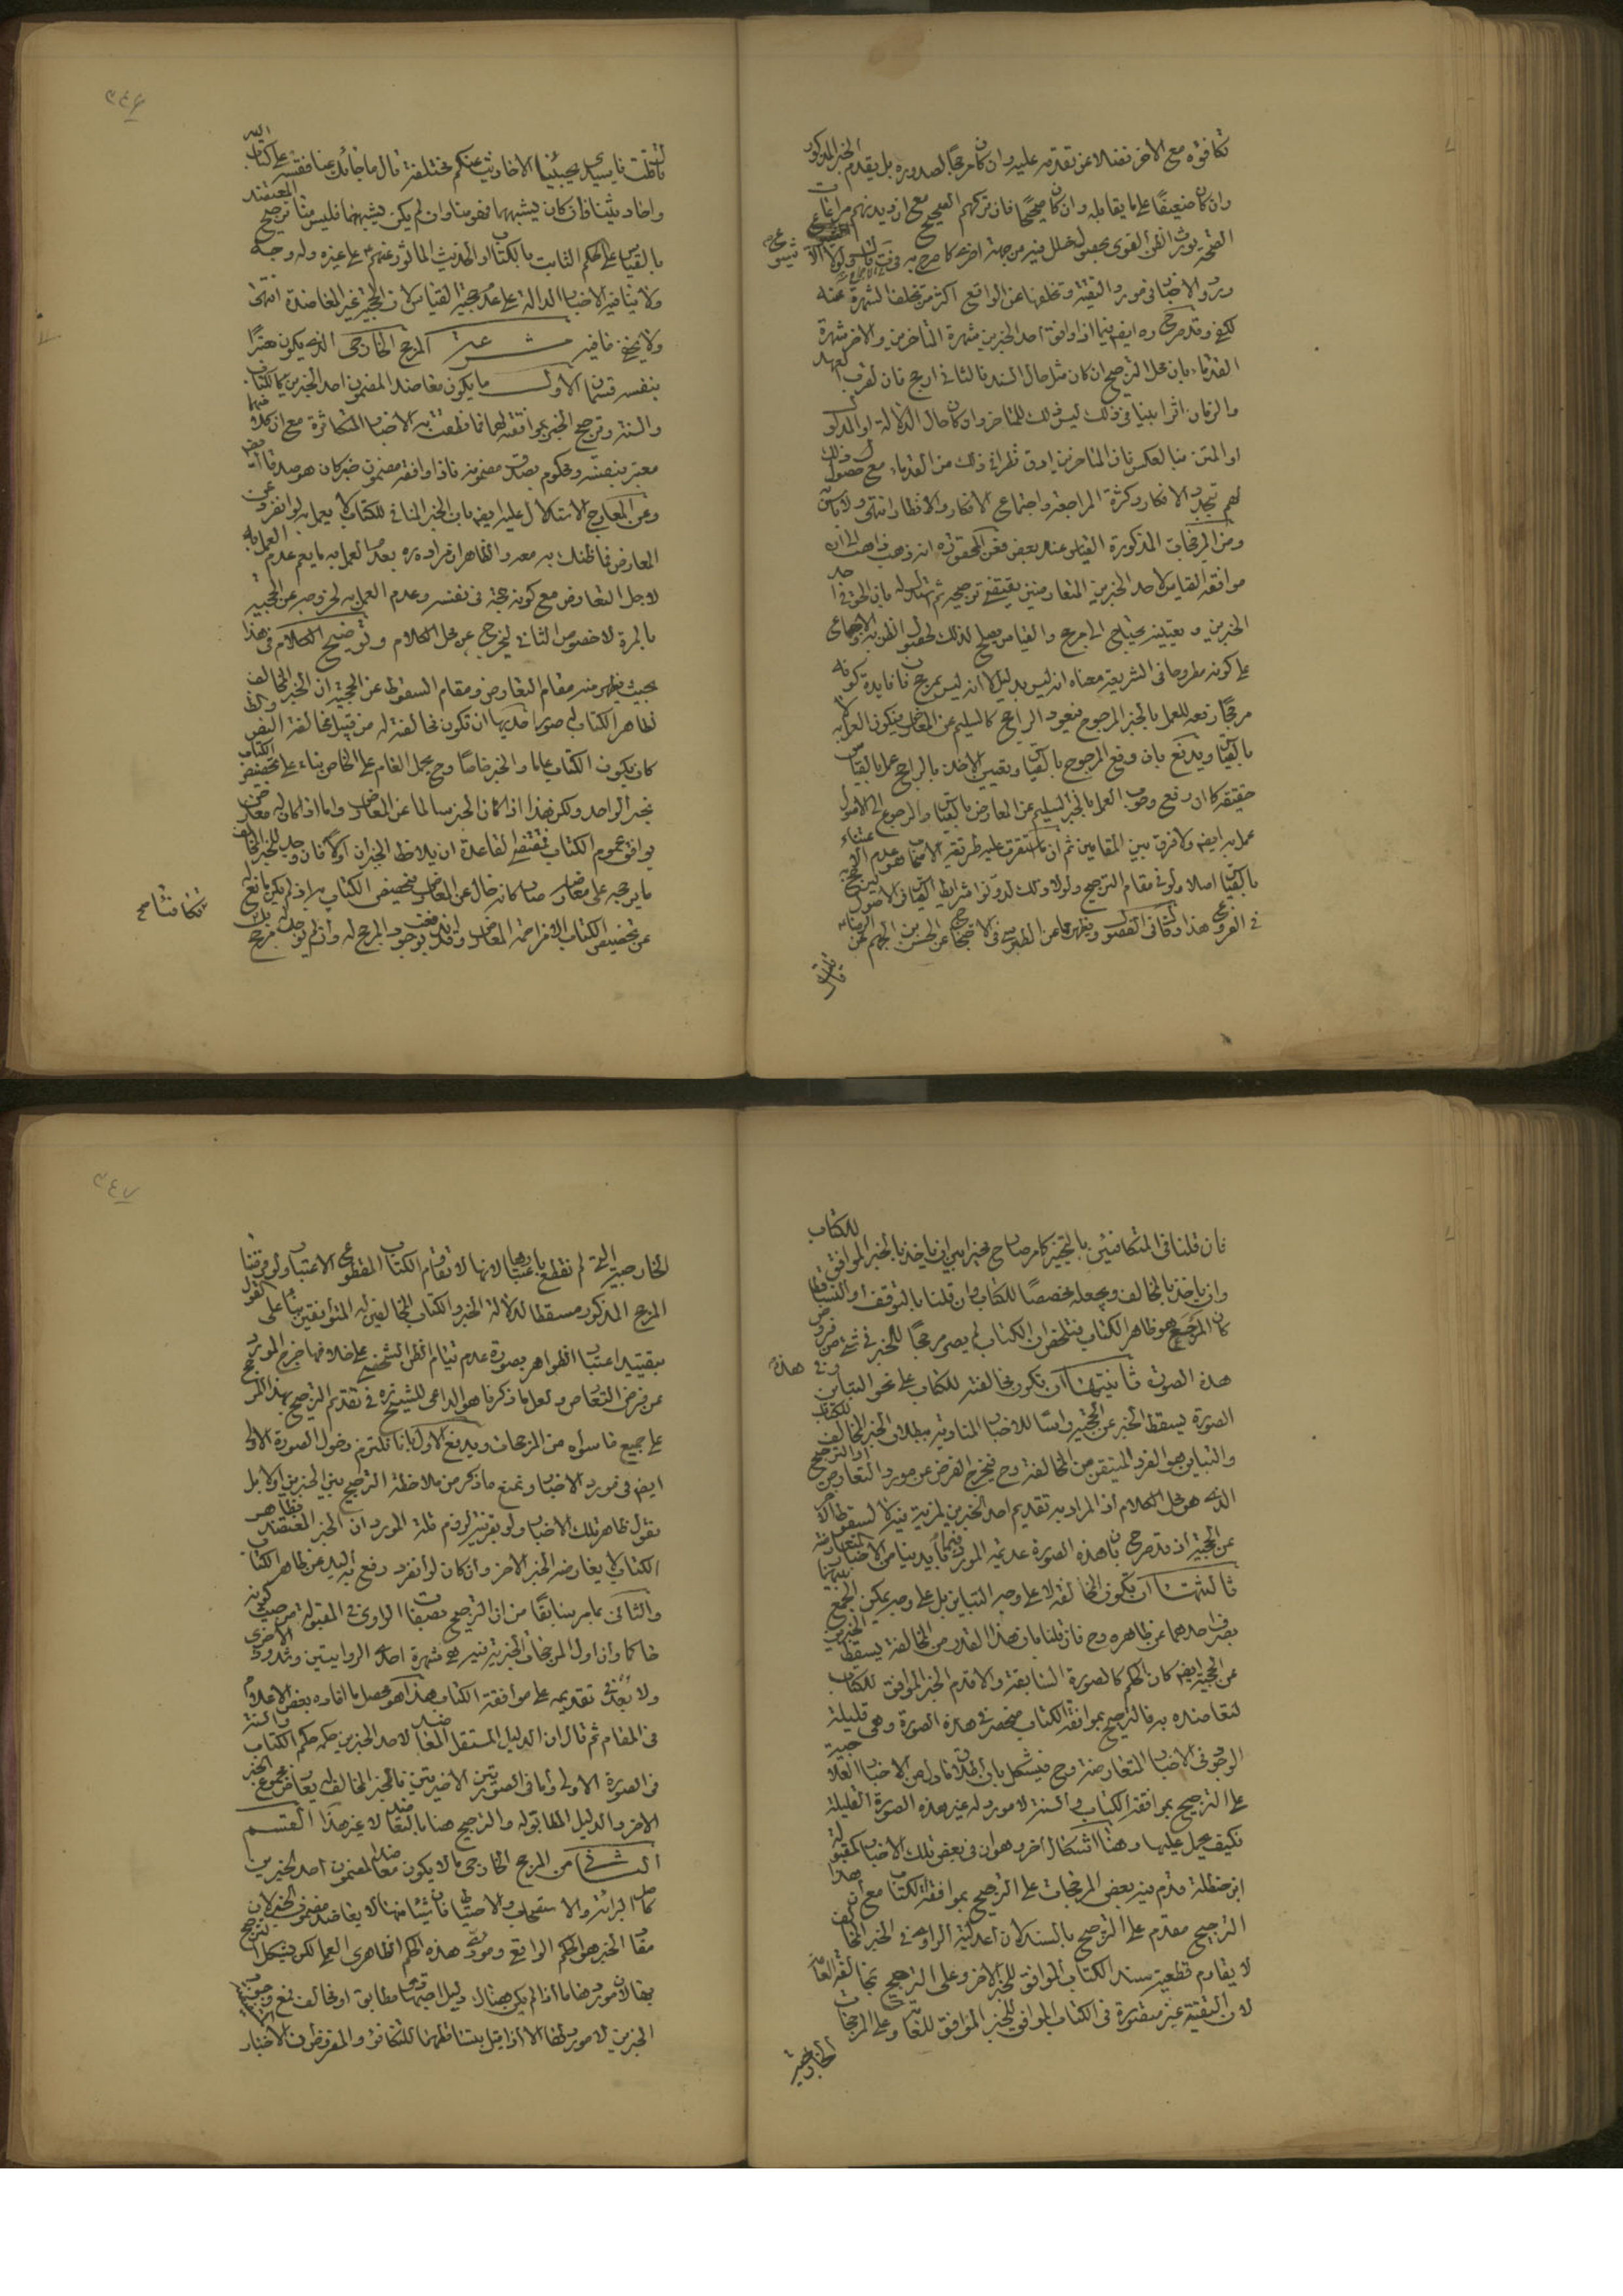 تكافؤه مع الاخر فضلا عن تقدمه عليه وان كان مرجحا لصدوره بل يقدم الخبر المذكور
وان كان ضعيفا على ما يقابله وان كان صحيحا فان تركهم الصحيح مع ان ديدنهم مراعات
الصحة يورث الظن القوى بحصول خلل فيه من جهة اخرى كما صرح به
ورود الاخبار فى مورد التقية وتخلفها عن الواقع اكثر من تخلف الشهرة عنه
كيف وقد صرح ره ايضم فيما اذا وافق احد الخبرين شهرة المتاخرين والاخر شهرة
القدماء بان محل الترجيح ان كان مثل حال السند فالثانى ارجح فان لقرب العهد
والزمان اثرا بينا فى ذلك ليس ذلك للمتاخر وان كان حال الدلالة او المدلول
او المتن فبالعكس فان المتاخرين ادق نظرا فى ذلك من القدماء مع حصول ذلك
لهم بتجدد الافكار وكثرة المراجعة واجتماع الافكار والانظار انتهى ولا باس به
ومن المرجحات المذكورة القياس عند بعض فعن المحقق ره انه ذهب ذاهب الى ان
موافقة القياس لاحد الخبرين المتعارضين يقتضى ترجيحه ثم استدل له بان الحق فى احد
الخبرين وتعيينه يحتاج الى مرجح والقياس يصلح لذلك لحصول الظن به والاجماع
على كونه مطروحا فى الشريعة معناه انه ليس بدليل لا انه ليس بمرجح فان فايدة كونه
مرجحا رفعه للعمل بالخبر المرجوح فيعود الراجح كالسليم عن المعارض فيكون العمل به لا
بالقياس ويدفع بان رفع المرجوح بالقياس وتعيين الاخذ بالراجح عمل بالقياس
حقيقة كما ان رفع وجوب العمل بالخبر السليم عن المعارض بالقياس والرجوع الى الاصول
عمل به ايضم ولا فرق بين المقامين ثم ان ما استقرت عليه طريقة الاصحاب هو عدم الاعتناء
بالقياس اصلا ولو فى مقام الترجيح ولولا ذلك لدونوا شرايط القياس فى الاصول ليرجح به
فى الفروع هذا وقال فى الفصول ويظهر مما عن الطبرسى فى الاحتجاج عن الحسن بن الجهم عن الرضاء
قال قلت
قال قلت يا سيدى يجيئنا الاحاديث عنكم مختلفة قال ما جائك عنا فقسه على كتاب الله
واحاديثنا فان كان يشبههما فهو منا وان لم يكن يشبههما فليس منا ترجيح المعتضد
بالقياس على الحكم الثابت بالكتاب او الحديث الماثور عنهم ع على غيره وله وجه
ولا ينافيه الاخبار الدالة على عدم حجية القياس لان الحجية غير المعاضدة انتهى
ولا يخفى ما فيه المرجح الخارجى الذى يكون معتبرا
بنفسه قسمان الاول ما يكون معاضد المضمون احد الخبرين كالكتاب
والسنة وترجيح الخبر بموافقته لهما مما نطقت به الاخبار المتكاثرة مع ان كلا منهما
معتبر بنفسه ومحكوم بصدق مضمونه فاذا وافقه مضمون خبر كان هو صدقا ايضم
وعن المعارج الاستدلال عليه ايضم بان الخبر المنافى للكتاب لا يعمل به لو انفرد عن
المعارض فما ظنك به معه والظاهر ان مراده ره بعدم العمل به ما يعم عدم العمل به
لاجل التعارض مع كونه حجة فى نفسه وعدم العمل به لخروجه عن الحجية
بالمرة لا خصوص الثانى ليخرج عن محل الكلام وتوضيح الكلام فى هذا
بحيث يظهر منه مقام التعارض ومقام السقوط عن الحجية ان الخبر المخالف
لظاهر الكتاب له صور احديها ان تكون مخالفته له من قبيل مخالفة النص والظ
كان يكون الكتاب عاما والخبر خاصا وح يحمل العام على الخاص بناء على تخصيص الكتاب
بخبر الواحد ولكن هذا اذا كان الخبر سالما عن المعارض واما اذا كان له معارض
يوافق عموم الكتاب فمقتضى القاعدة ان يلاحظ الخبران اولا فان وجد للخبر المخالف
ما يرجحه على معارضه صار كانه خال عن المعارض فيخصص الكتاب به اذ لم يكن مانع له
عن تخصيص الكتاب الا مزاحمة المعارض وقد اندفعت بوجود المرجح له وان لم يوجد له مرجح بل
تكافئا مع
فان قلنا فى المتكافئين بالتخيير كما مر صار مخيرا بين ان ياخذ بالخبر الموافق للكتاب
وان ياخذ بالمخالف ويجعله مخصصا للكتاب وان قلنا بالتوقف او التساقط
كان المرجع هو ظاهر الكتاب فتلخص ان الكتاب لم يصر مرجحا للخبر فى شئ من فروض
هذه الصورة ثانيتها ان تكون مخالفته للكتاب على نحو التباين وفى هذه
الصورة يسقط الخبر عن الحجية راسا للاخبار المنادية ببطلان الخبر المخالف للكتاب
والتباين هو الفرد المتيقن من المخالفة وح فيخرج الفرض عن مورد التعارض او الترجيح
الذى هو محل الكلام اذ المراد به تقديم احد الخبرين لمزية فيه لا لسقوط الاخر
عن الحجية اذ قد صرح بان هذه الصورة عديمة المورد فيما بايدينا من الاخبار المتعارضة
ثالثتها ان تكون المخالفة لا على وجه التباين بل على وجه يمكن الجمع بينهما
بصرف احدهما عن ظاهره وح فان قلنا بان هذا القدر من المخالفة يسقط الخبر
عن الحجية ايضم كان الحكم كالصورة السابقة والا قدم الخبر الموافق للكتاب
لتعاضده به فالترجيح بموافقة الكتاب منحصر فى هذه الصورة وهى قليلة
الوجود فى الاخبار المتعارضة وح فيشكل بان اطلاق ما دل من الاخبار العلاجية
على الترجيح بموافقة الكتاب والسنة لا مورد له غير هذه الصورة القليلة
فكيف يحمل عليها وهنا اشكال اخر وهو ان فى بعض تلك الاخبار كمقبولة
ابن حنظلة قدم فيه بعض المرجحات على الترجيح بموافقة الكتاب مع ان هذا
الترجيح مقدم على الترجيح بالسند لان اعدلية الراوى فى الخبر المخالف
لا يقاوم قطعية سند الكتاب الموافق للخبر الاخر وعلى الترجيح بمخالفة العامة
لان التقية غير متصورة فى الكتاب الموافق للخبر الموافق للعامة وعلى المرجحات
الخارجية
الخارجية التى لم نقطع باعتبارها لانها لا تقاوم الكتاب المقطوع الاعتبار ولو فرضنا
المرجح المذكور مسقطا لدلالة الخبر والكتاب المخالفين له المتوافقين بناء على القول
بتقييد اعتبار الظواهر بصورة عدم قيام الظن الشخصى على خلافها خرج المورد
عن فرض التعارض ولعل ما ذكرنا هو الداعى للشيخ ره فى تقديم الترجيح بهذا المرجح
على جميع ما سواه من المرجحات ويدفع الاول بانا نلتزم دخول الصورة الاولى
ايضم فى مورد الاخبار ونمنع ما ذكر من ملاحظة الترجيح بين الخبرين اولا بل
نقول ظاهر تلك الاخبار ولو بقرينة لزوم قلة المورد ان الخبر المعتضد بظاهر
الكتاب لا يعارضه الخبر الاخر وان كان لو انفرد رفع به اليد عن ظاهر الكتاب
والثانى بما مر سابقا من ان الترجيح بصفات الراوى فى المقبولة من حيث كونه
حاكما وان اول المرجحات الخبرية فيه هى شهرة احدى الروايتين وشذوذ الاخرى
ولا بعد فى تقديمه على موافقة الكتاب هذا هو محصل ما افاده بعض الاعلام
فى المقام ثم قال ان الدليل المستقل المعاضد لاحد الخبرين حكمه حكم الكتاب والسنة
فى الصورة الاولى واما فى الصورتين الاخيرتين فالخبر المخالف له يعارض مجموع الخبر
الاخر والدليل المطابق له والترجيح هنا بالتعاضد لا غير هذا القسم
الثانى من المرجح الخارجى ما لا يكون معاضدا لمضمون احد الخبرين
كاصل البرائة والاستصحاب والاحتياط فان شيئا منها لا يعاضد مضمون الخبر لان
مفاد الخبر هو الحكم الواقع ومؤدى هذه الحكم الظاهرى العملى لكن يشكل الترجيح
بها لان موردها ما اذا لم يكن هناك دليل اجتهادى مطابق او مخالف فمع وجود
الخبرين لا مورد لها الا اذا قيل بتساقطهما للتكافؤ والمفروض ان الاخبار